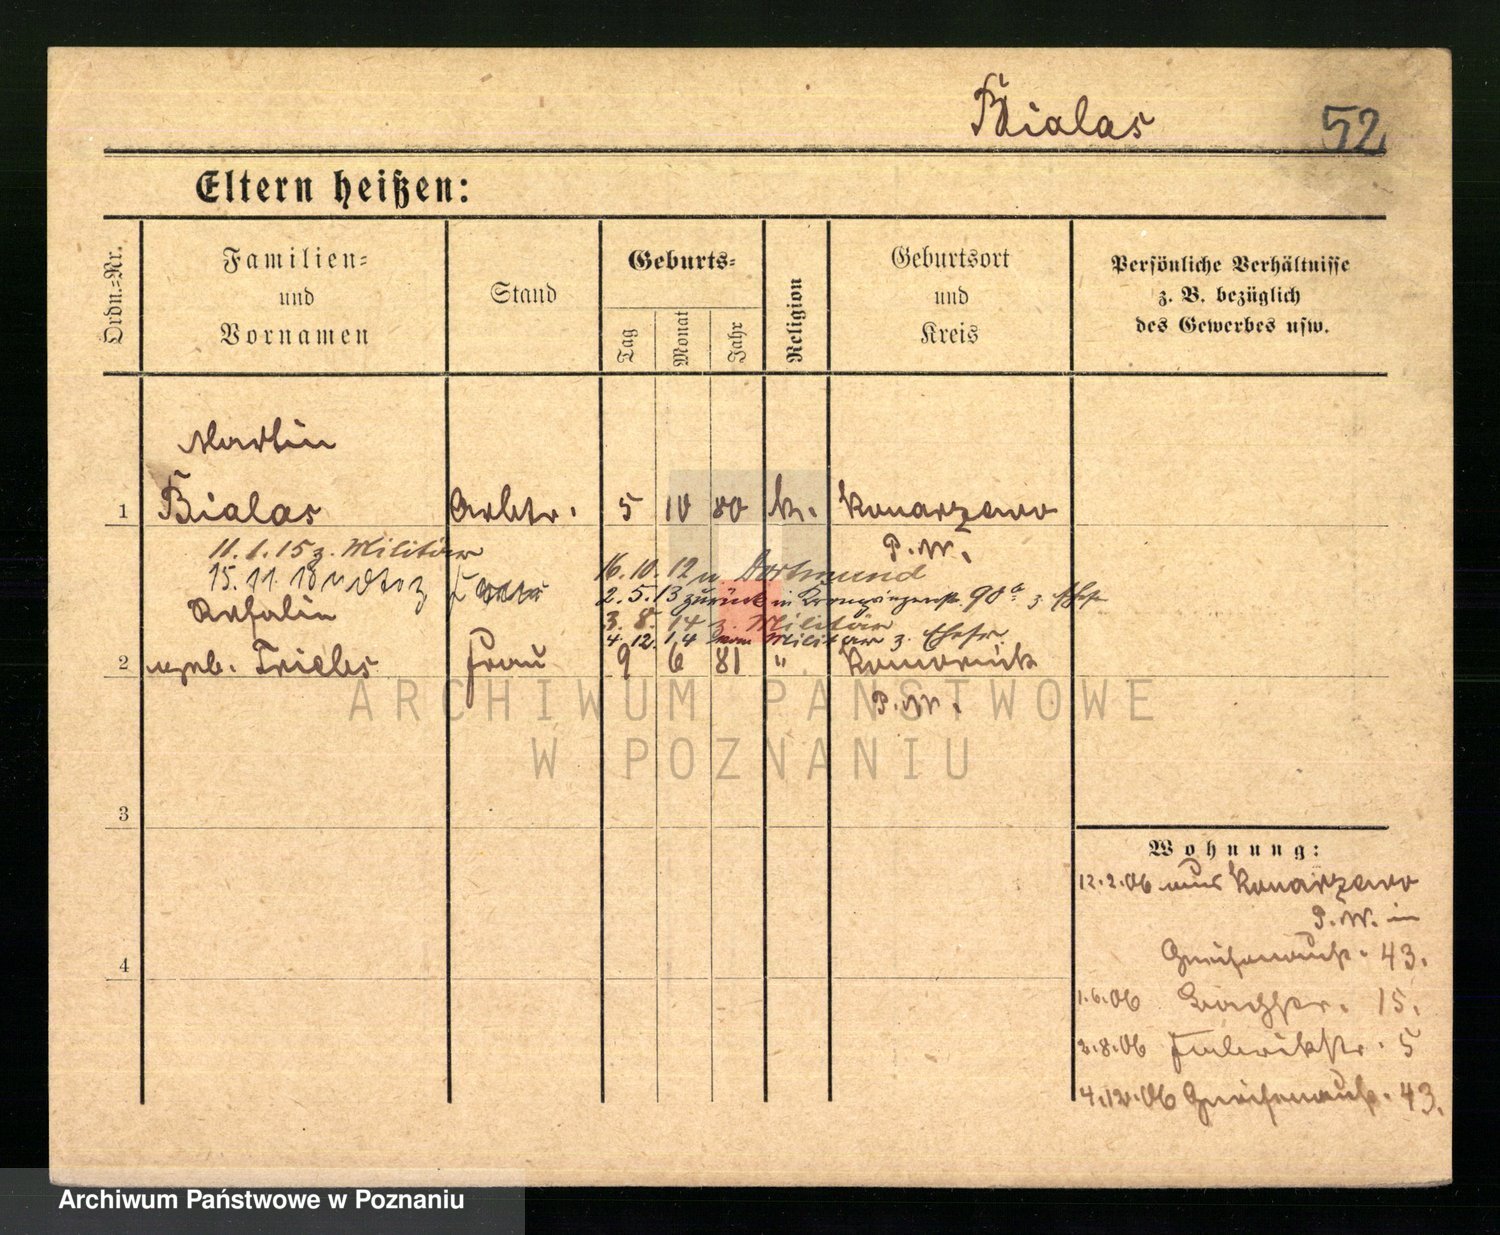 Bialas 52
Eltern heißen:
Ordn.-Nr.
Familien-
und
Vornamen
Stand
Geburts-
Tag
Monat
Jahr
Religion
Geburtsort
und
Kreis
Persönliche Verhältnisse
z. B. bezüglich
des Gewerbes usw.
Martin
1 Bialas Arbtr. 5 10 80 k. Konarzewo
P.W.
11.1.15 z. Militär
16.10.12 n. Dortmund
15.11.18
2.5.13 zurück in 90a z. Ehefr
3.8.14 z. Militär
4.12.14 vom Militär z. Ehefr.
2 geb. Frau 9 6 81 "
P.W.
ARCHIWUM PAŃSTWOWE
W POZNANIU
3
4
Wohnung:
12.2.06 aus Konarzewo
P.W. in
Gneisenaustr. 43.
1.6.06 Bachstr. 15.
2.8.06 5
4.12.06 Gneisenaustr. 43.
Archiwum Państwowe w Poznaniu